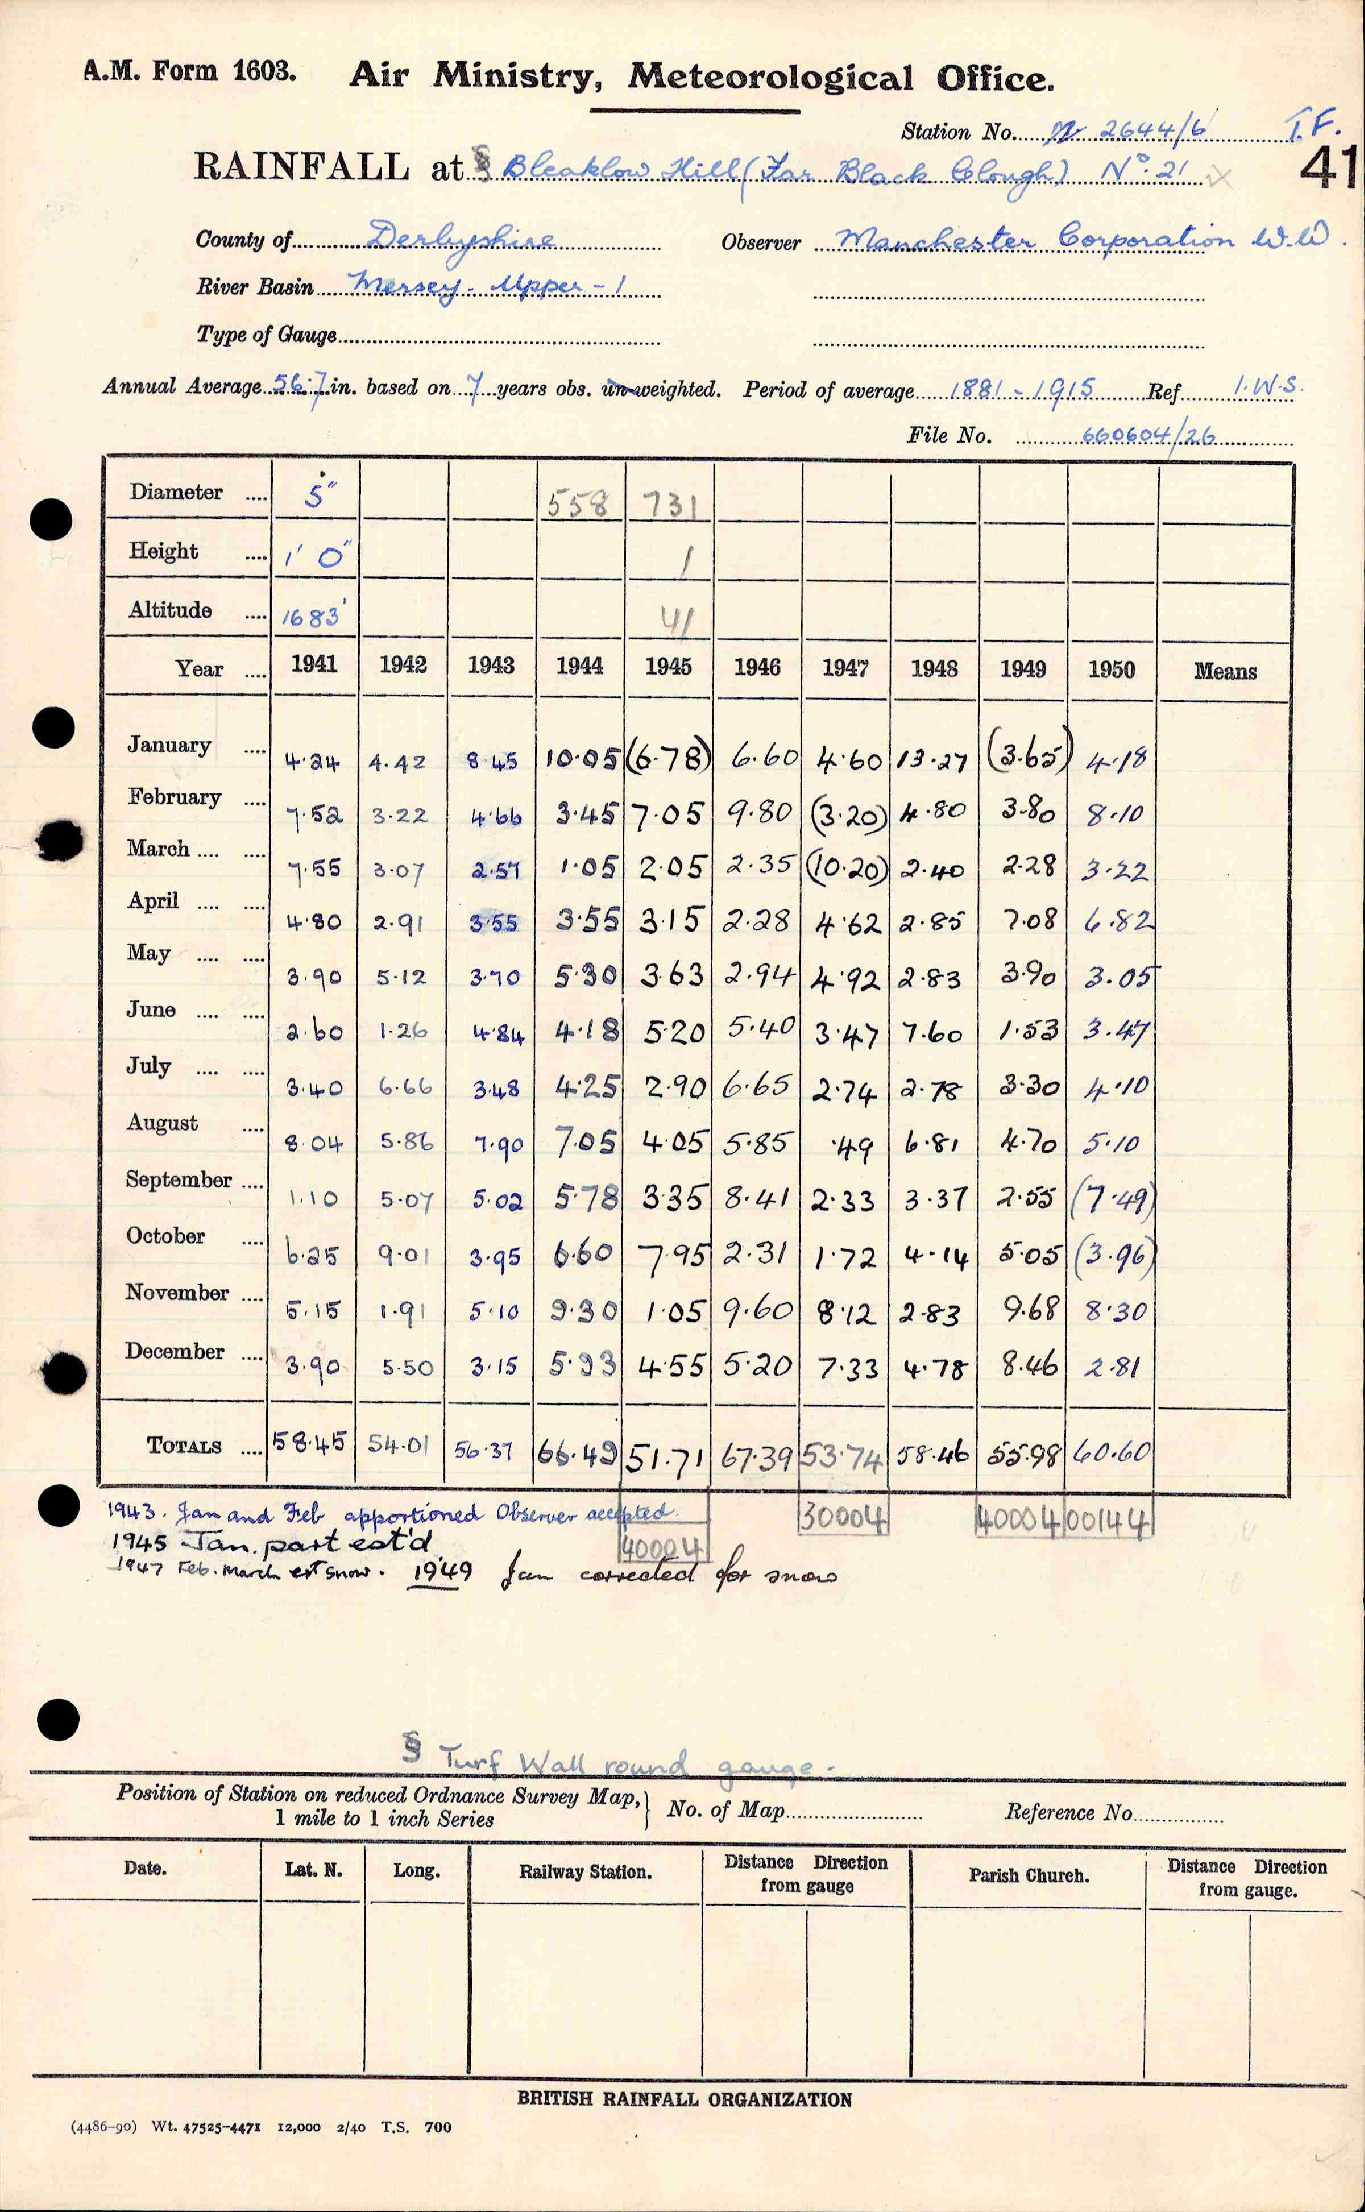 A.M. Form 1603. Air Ministry, Meteorological Office.
Station No. 2644/6 T.F.
RAINFALL at § Bleaklow Hill (Far Black Clough) No. 21 41
County of Derbyshire Observer Manchester Corporation W.W.
River Basin Mersey - Upper - 1
Type of Gauge
Annual Average 56.7 in. based on 7 years obs. un-weighted. Period of average 1881 - 1915 Ref. I.W.S.
File No. 660604/26
Diameter .... 5" 558 731
Height .... 1' 0" 1
Altitude .... 1683' 41
Year .... 1941 1942 1943 1944 1945 1946 1947 1948 1949 1950 Means
January .... 4.24 4.42 8.45 10.05 (6.78) 6.60 4.60 13.27 (3.65) 4.18
February .... 7.52 3.22 4.66 3.45 7.05 9.80 (3.20) 4.80 3.80 8.10
March .... .... 7.55 3.07 2.57 1.05 2.05 2.35 (10.20) 2.40 2.28 3.22
April .... .... 4.80 2.91 3.55 3.55 3.15 2.28 4.62 2.85 7.08 6.82
May .... .... 3.90 5.12 3.70 5.30 3.63 2.94 4.92 2.83 3.90 3.05
June .... .... 2.60 1.26 4.84 4.18 5.20 5.40 3.47 7.60 1.53 3.47
July .... .... 3.40 6.66 3.48 4.25 2.90 6.65 2.74 2.78 3.30 4.10
August .... 8.04 5.86 7.90 7.05 4.05 5.85 .49 6.81 4.70 5.10
September .... 1.10 5.07 5.02 5.78 3.35 8.41 2.33 3.37 2.55 (7.49)
October .... 6.25 9.01 3.95 6.60 7.95 2.31 1.72 4.14 5.05 (3.96)
November .... 5.15 1.91 5.10 9.30 1.05 9.60 8.12 2.83 9.68 8.30
December .... 3.90 5.50 3.15 5.93 4.55 5.20 7.33 4.78 8.46 2.81
TOTALS .... 58.45 54.01 56.37 66.49 51.71 67.39 53.74 58.46 55.98 60.60
1943. Jan and Feb apportioned Observer accepted. 30004 40004 00144
1945 Jan. part est'd 40004
1947 Feb. March est snow. 1949 Jan corrected for snow
§ Turf Wall round gauge.
Position of Station on reduced Ordnance Survey Map, 1 mile to 1 inch Series } No. of Map Reference No.
Date. Lat. N. Long. Railway Station. Distance Direction from gauge Parish Church. Distance Direction from gauge.
BRITISH RAINFALL ORGANIZATION
(4486-90) Wt. 47525-4471 12,000 2/40 T.S. 700